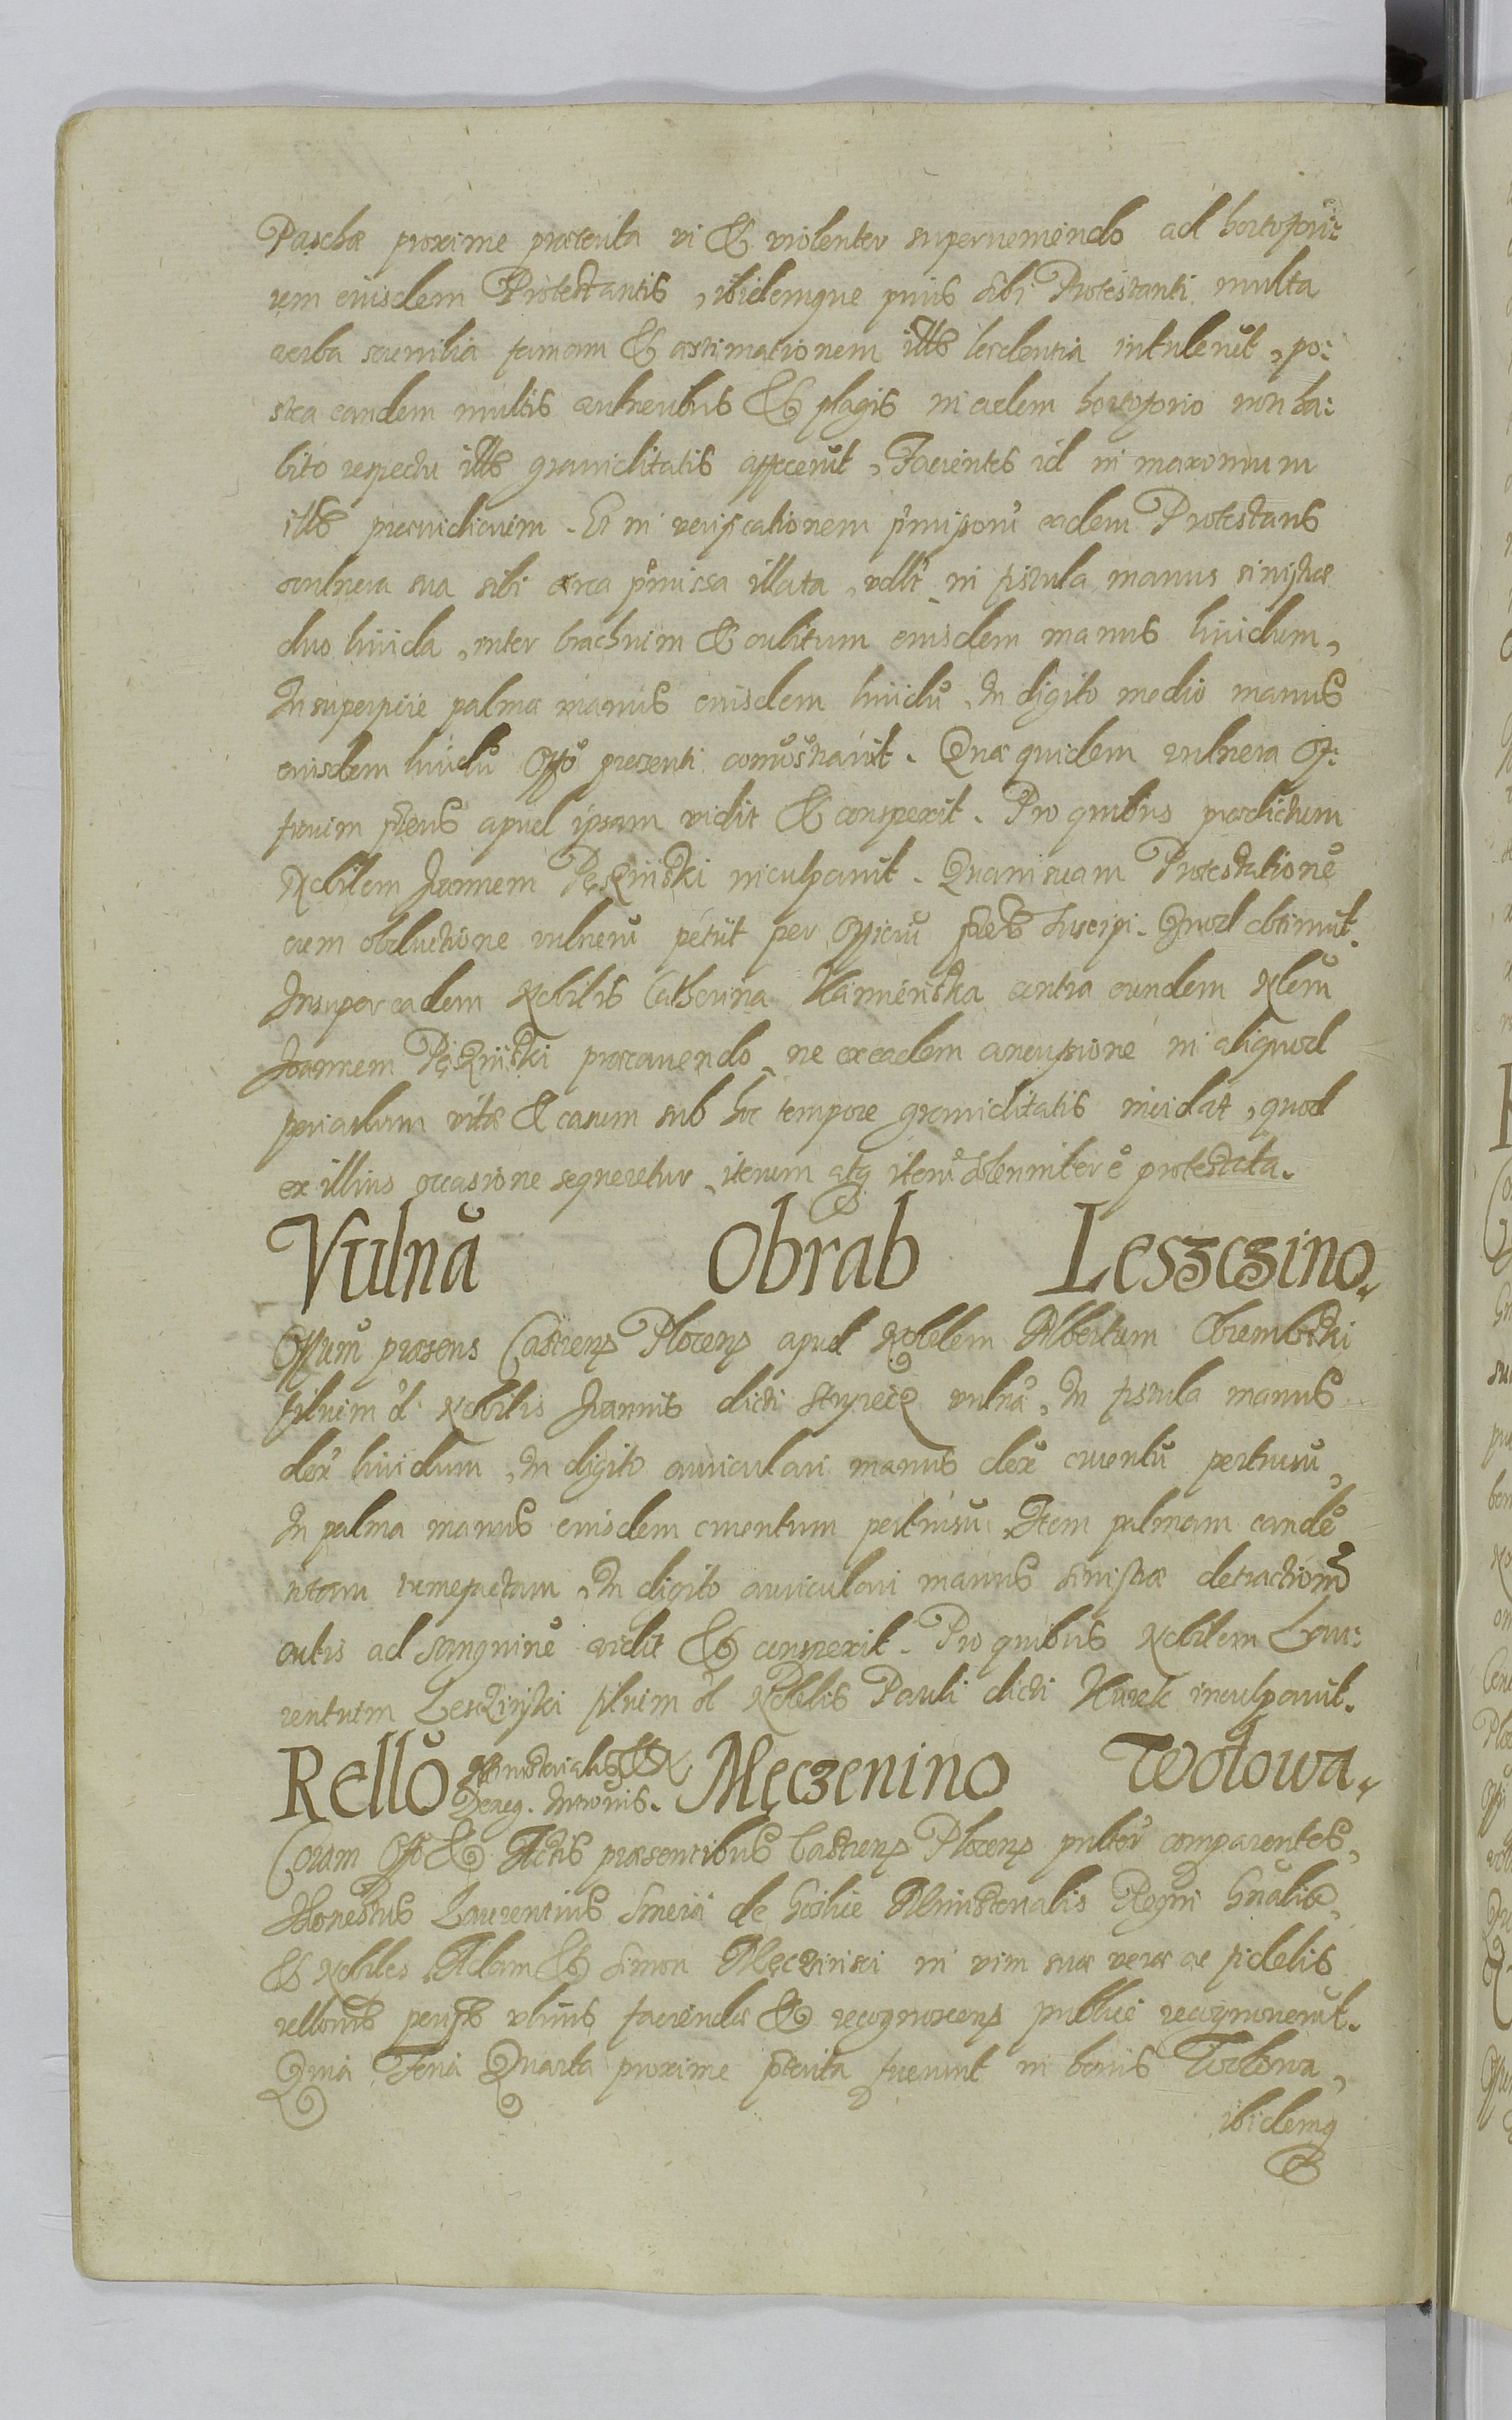 Paschæ proxime præterita vi & violenter superveniendo ad hortopori:
um eiusdem Protestantis, ibidemque prius sibi Protestanti multa
verba scurrilia famam & æstimationem illius lædentia intulerūt, po:
stea eandem multis vulneribus & plagis in eodem hortoporio non ha:
bito respectu illius graviditatis affecerūt, Facientes id in maximum
illius præiudicium. Et in verificationem præmissorū eadem Protestans
vulnera sua sibi circa præmissa illata, vdlt in fistula manus sinistræ
duo livida, inter brachium & cubitum eiusdem manus lividum,
In superficie palmæ manus eiusdem lividū, In digito medio manus
eiusdem lividū Offo præsenti comōstravit. Quæ quidem vulnera Of:
ficium præns apud ipsam vidit & conspexit. Pro quibus prædictum
Nobilem Joannem inculpavit. Quam suam Protestationē
cum obductione vulnerū petiit per Officiū præns suscipi. Quod obtinuit.
Insuper eadem Nobilis Catherina contra eundem Nlem
Joannem præcavendo, ne ex eadem concussione in aliquod
periculum vitæ & casum sub hoc tempore graviditatis incidat, quod
ex illius occasione sequeretur, iterum atq iterū solenniter ē protestata.
Vulnā Obrąb Leszczino.
Offium præsens Castrens Plocens apud Noblem Albertum Obrembski
filium ol Nobilis Joannis dicti vulnā, In fistula manus
dex lividum, In digito auriculari manus dex cruentū pertusū,
In palma manus eiusdem cruentum pertusū, Item palmam eandē
totam tumefactam, In digito auriculari manus sinistræ detractionē
cutis ad sanguinē vidit & conspexit. Pro quibus Nobilem Lau:
rentium Lesczinski filium ol Noblis Pauli dicti Kurek inculpavit.
Rellō Ministerialis Męczenino Wołowa.
Coram Offo & Actis præsentibus Castrens Plocens psonalitr comparentes,
Honestus Laurentius de Ministerialis Regni Gnalis,
& Nobiles Adam & Simon Męczinsci in vim suæ veræ ac fidelis
rellonis facienda & recognoscens publice recognoverūt.
Quia Feria Quarta proxime præterita fuerunt in bonis Wołowa,
ibidemq